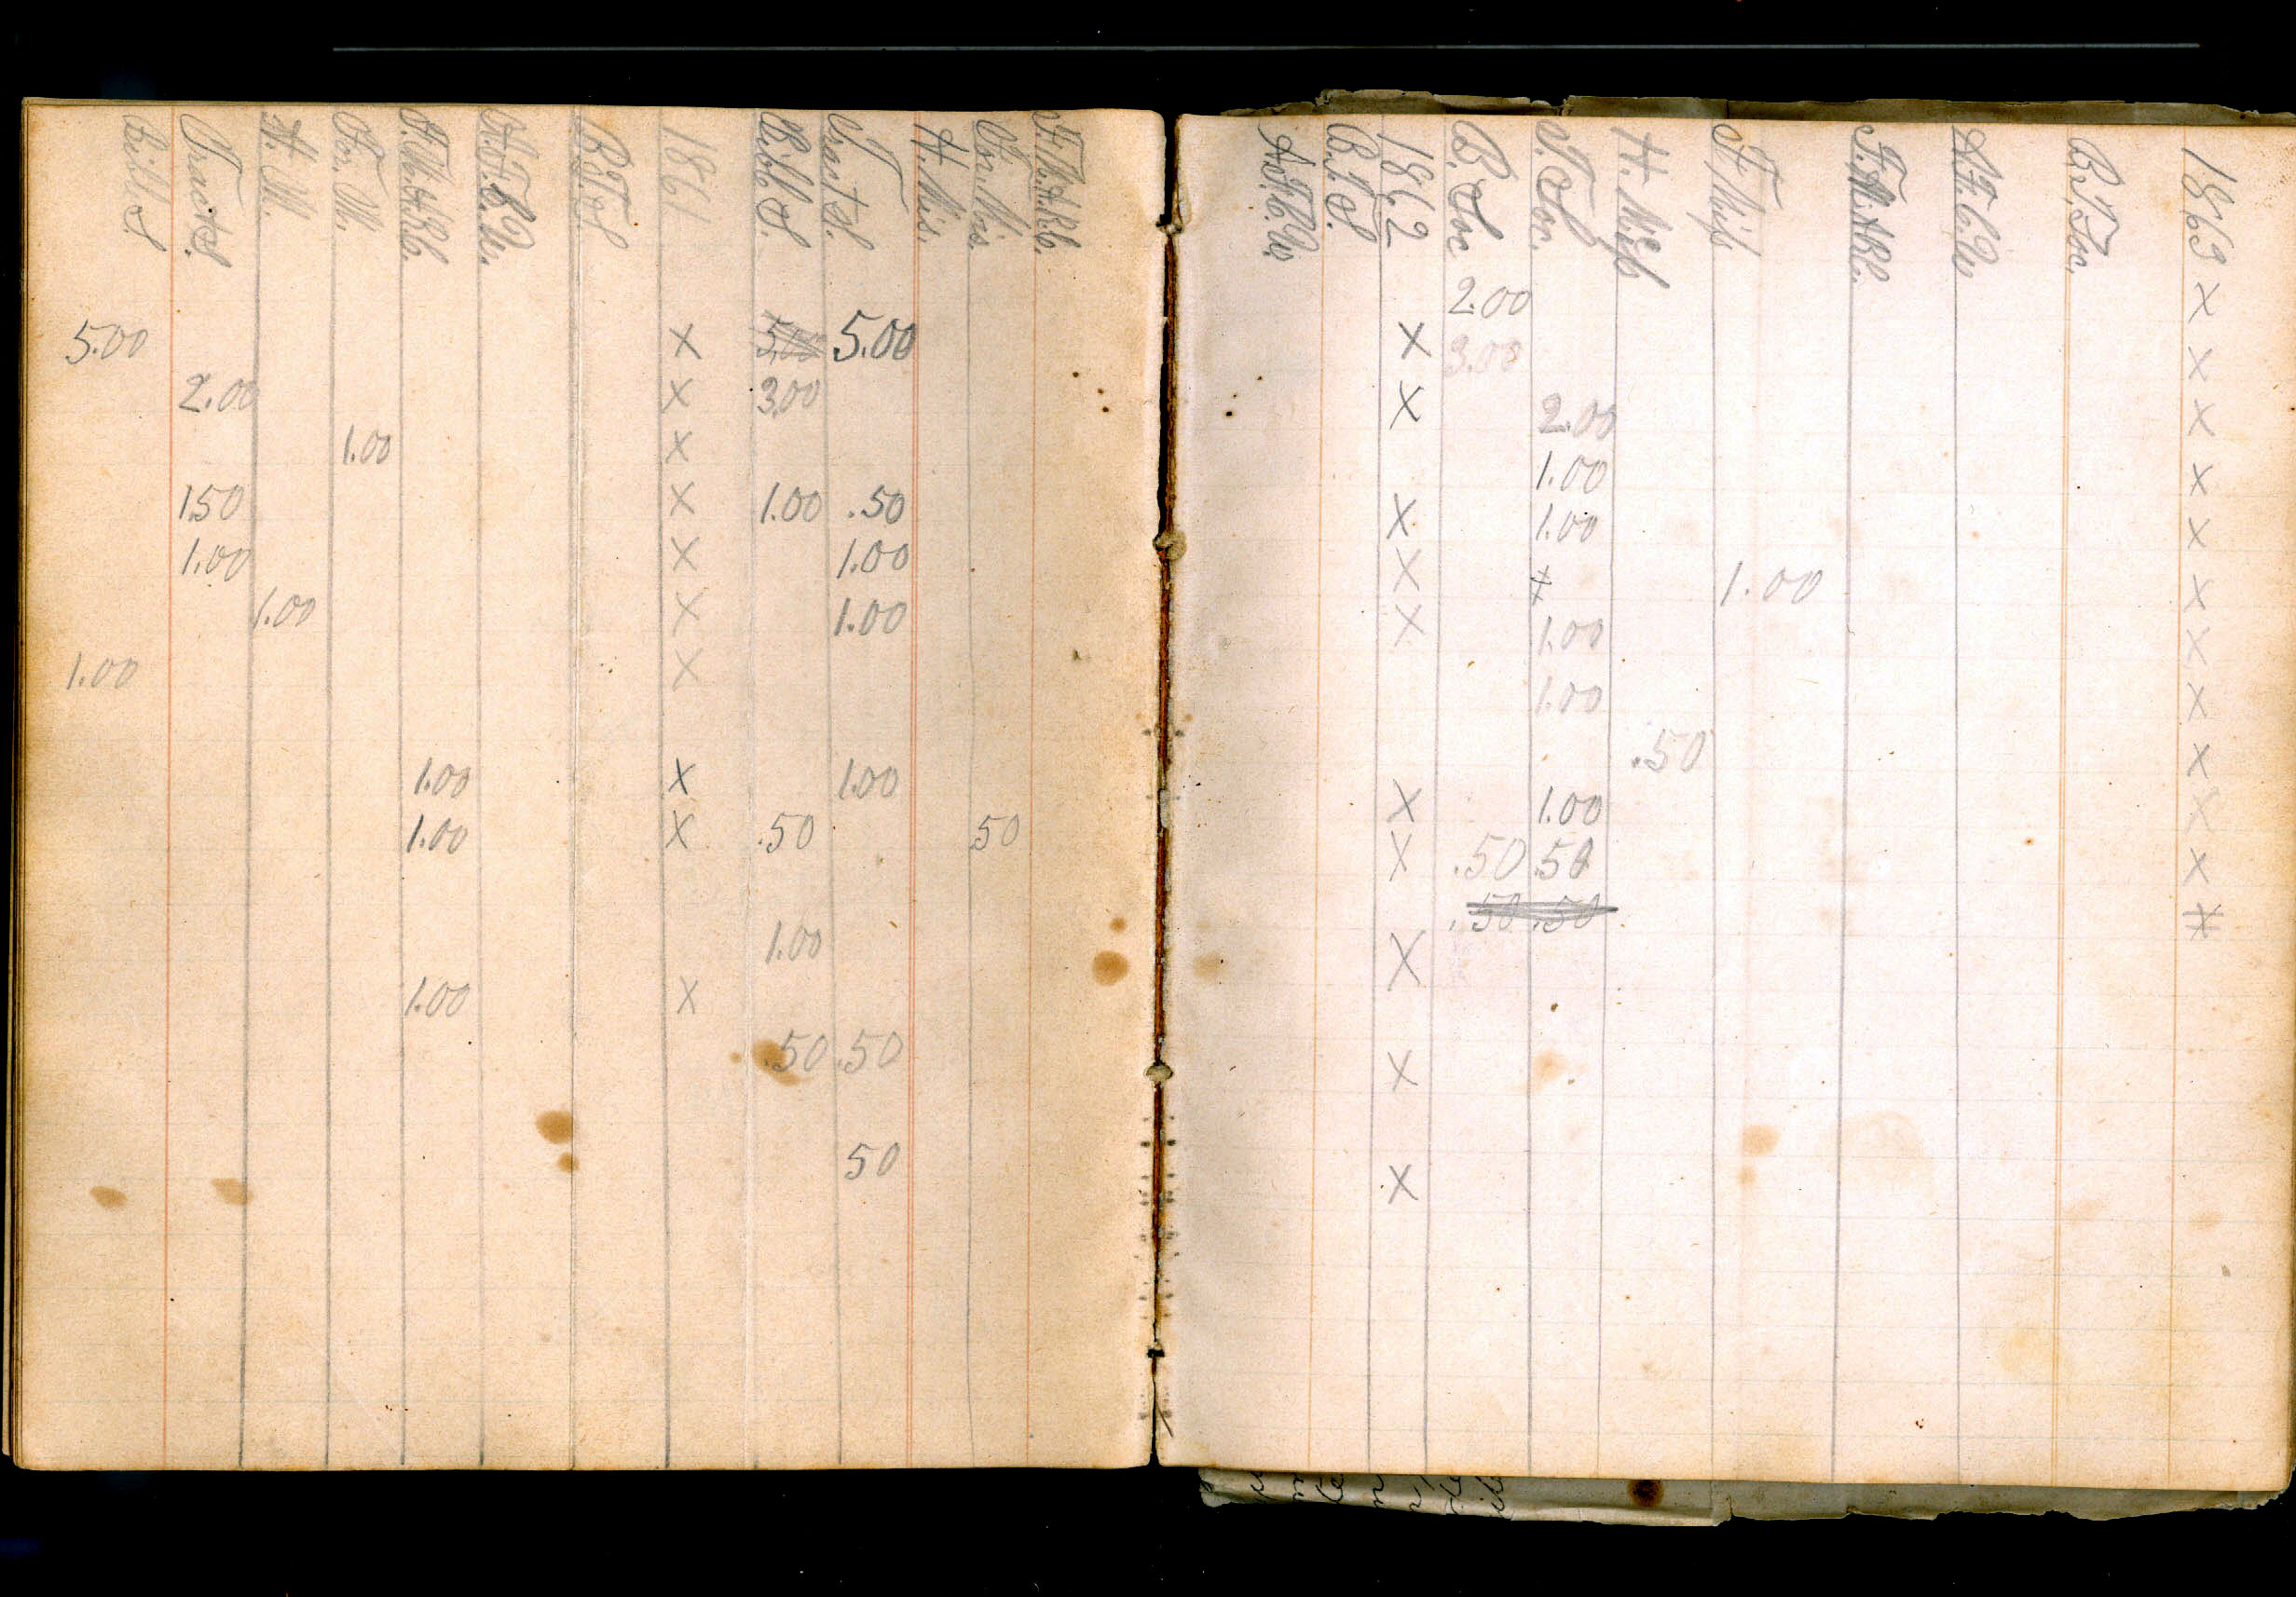 Bibl. S. Tracts. H. M. For. M. F.M.&R.C. A.F.C.U. B.T.S. 1861 Bibl S. Tract S. H. Mis. For. Mis. F.M.&R.C.
5.00 X 5.00 5.00
2.00 X 3.00
1.00 X
1.50 X 1.00 .50
1.00 X 1.00
1.00 X 1.00
1.00 X
1.00 X 1.00
1.00 X .50 50
1.00
1.00 X
.50 .50
50
B.T.S. 1862 B. Soc T. Soc. H. F. Miss A.F.C.U. B.T. Soc. 1863
2.00 X
X 3.00 X
X 2.00 X
1.00 X
X 1.00 X
X + 1.00 X
X 1.00 X
1.00 X
.50 X
X 1.00 X
X .50 .50 X
.50 .50 X
X
X
X